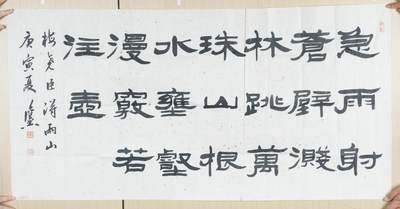 急雨射
蒼壁濺
林跳萬
珠山根
水壅壑
漫竅若
注壺
梅堯臣詩雨山
庚寅夏